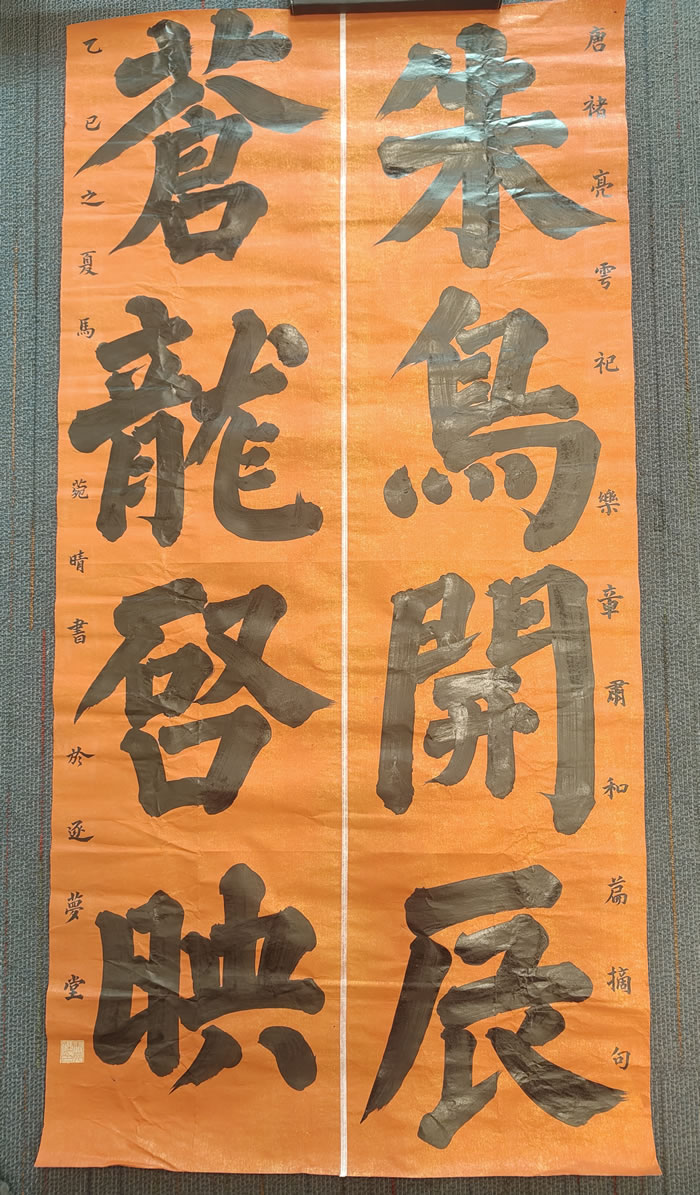 唐褚亮雩祀樂章肅和篇摘句
朱鳥開辰
蒼龍啓映
乙巳之夏馬菀晴書於逐夢堂